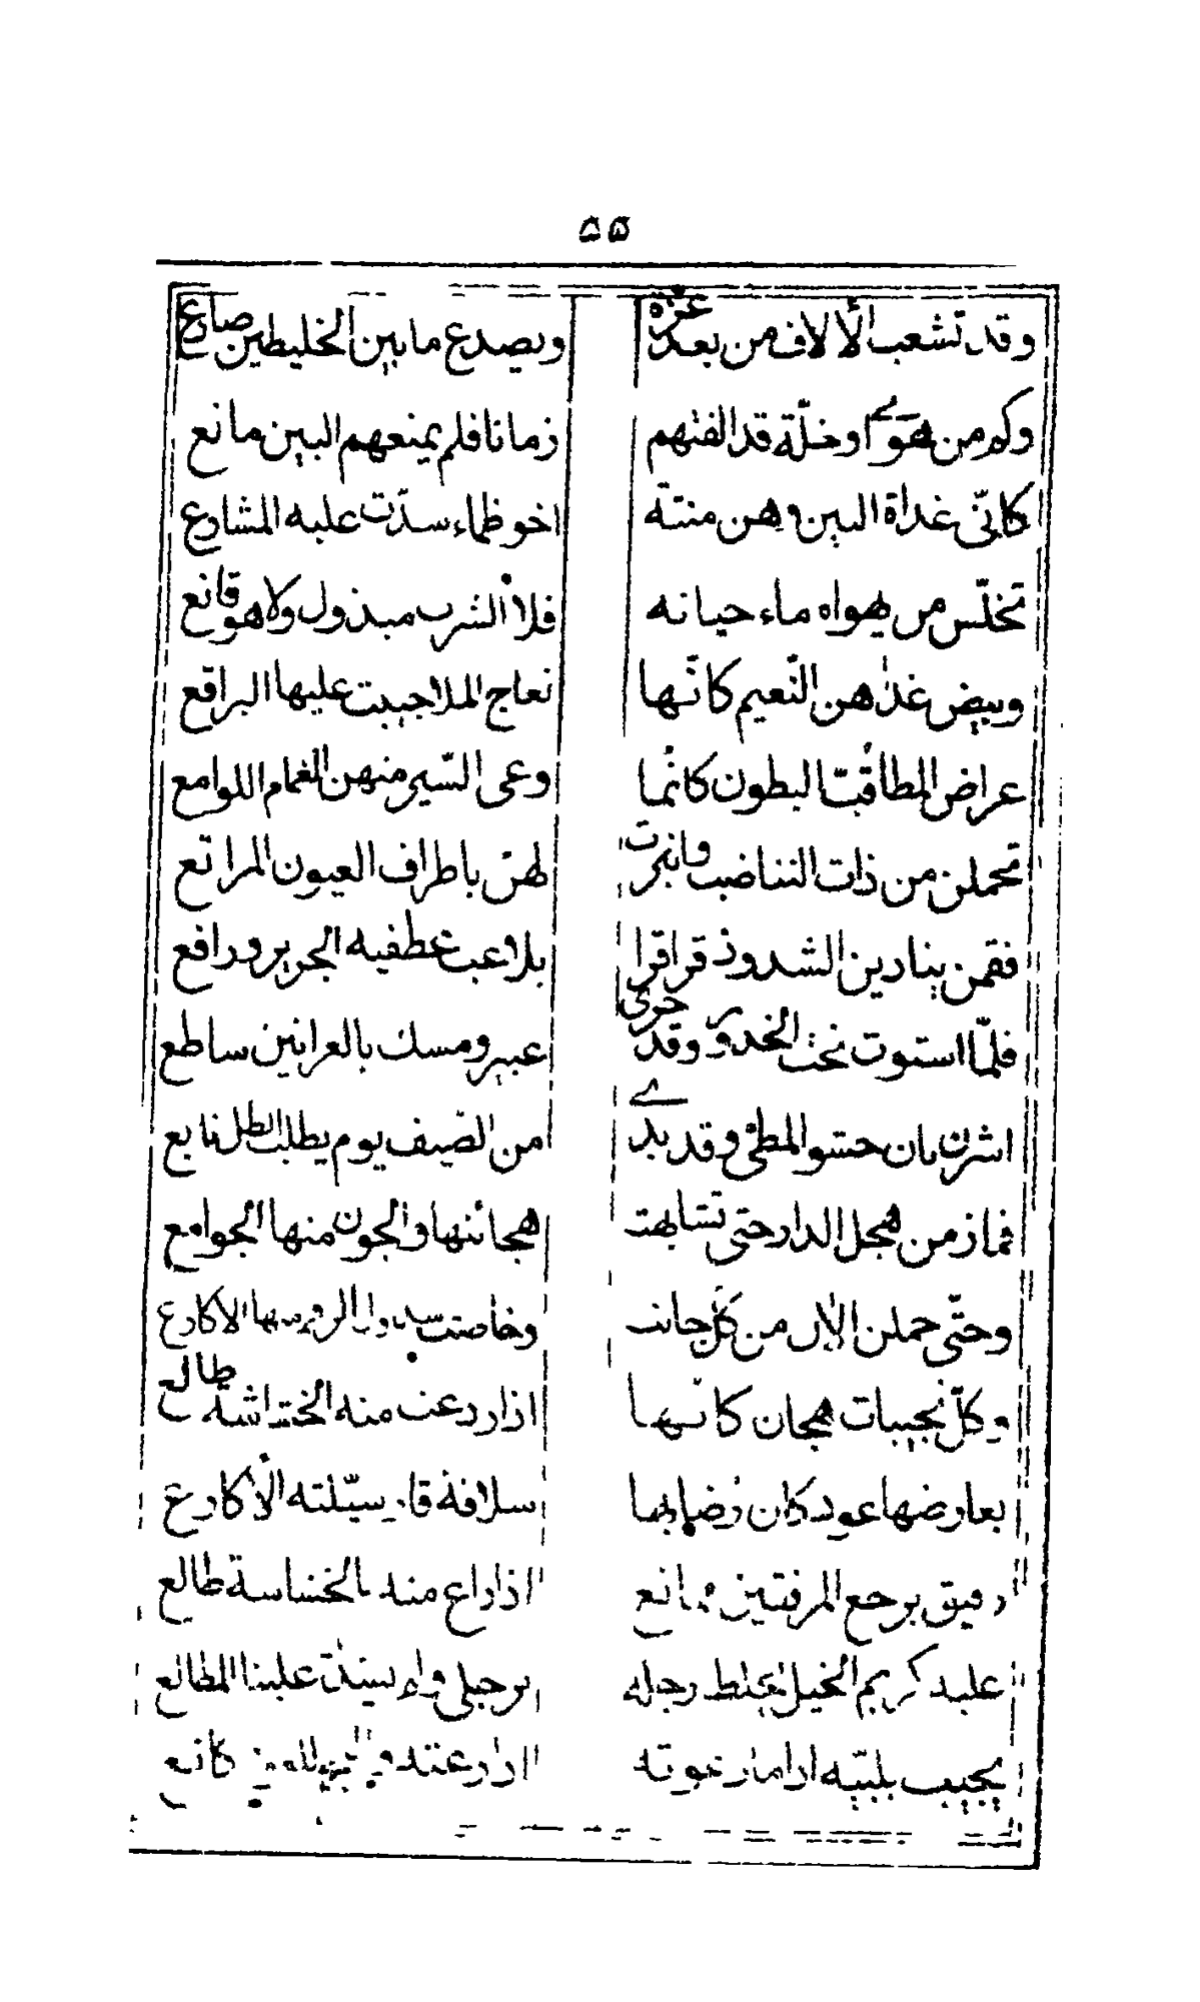 ۵۵
وقد تشعب الألاف من بعد عزة ويصدع ما بين الخليطين صادع
وكم من هوى او خلّة قد الفتهم زمانا فلم يمنعهم البين مانع
كانّى غداة البين وهن منتة اخو ظماء سدّت عليه المشارع
تخلّس من يهواه ماء حياته فلا الشرب مبذول ولا هو قانع
وبيض غذاهن النّعيم كانّها نعاج الملا جيبت عليها البراقع
عراض المطا قبّ البطون كانما وعى السّير منهن الغمام اللوامع
تحملن من ذات التناضب وانبرت لهنّ باطراف العيون المراتع
فقمن ينادين الشدو ذقراقرا يلاعب عطفيه الجرير ورافع
فلمّا استوت تحت الخدور وقد جرى عبير ومسك بالعرانين ساطع
اشرن بان حشو المطىّ وقد بدى من الصّيف يوم يطلب الظل نابع
فماز من هجل الدار حتى تشابهت هجائنها والجون منها الجوامع
وحتّى حملن من كلّ جانب وخاضت منها الاكارع
وكلّ نجيبات هجان كانّها اذا ردعت منه الخشاشة طالع
يعارضها عود كان رضابها سلافة قار سيّلته الأكارع
رفيق برجع المرفقين ممانع اذا راع منه بالخشاسة طالع
عليه كريم الخيل رجله برجلى ولم علينا المطالع
يجيب بلبّيه اذا ما دعوته كانع